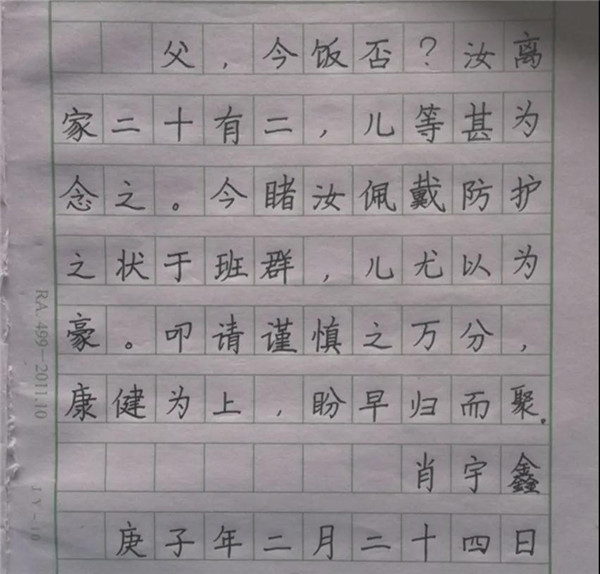 父，今饭否？汝离
家二十有二，儿等甚为
念之。今睹汝佩戴防护
之状于班群，儿尤以为
豪。叩请谨慎之万分，
康健为上，盼早归而聚。
肖宇鑫
庚子年二月二十四日
RA.499-2011.10